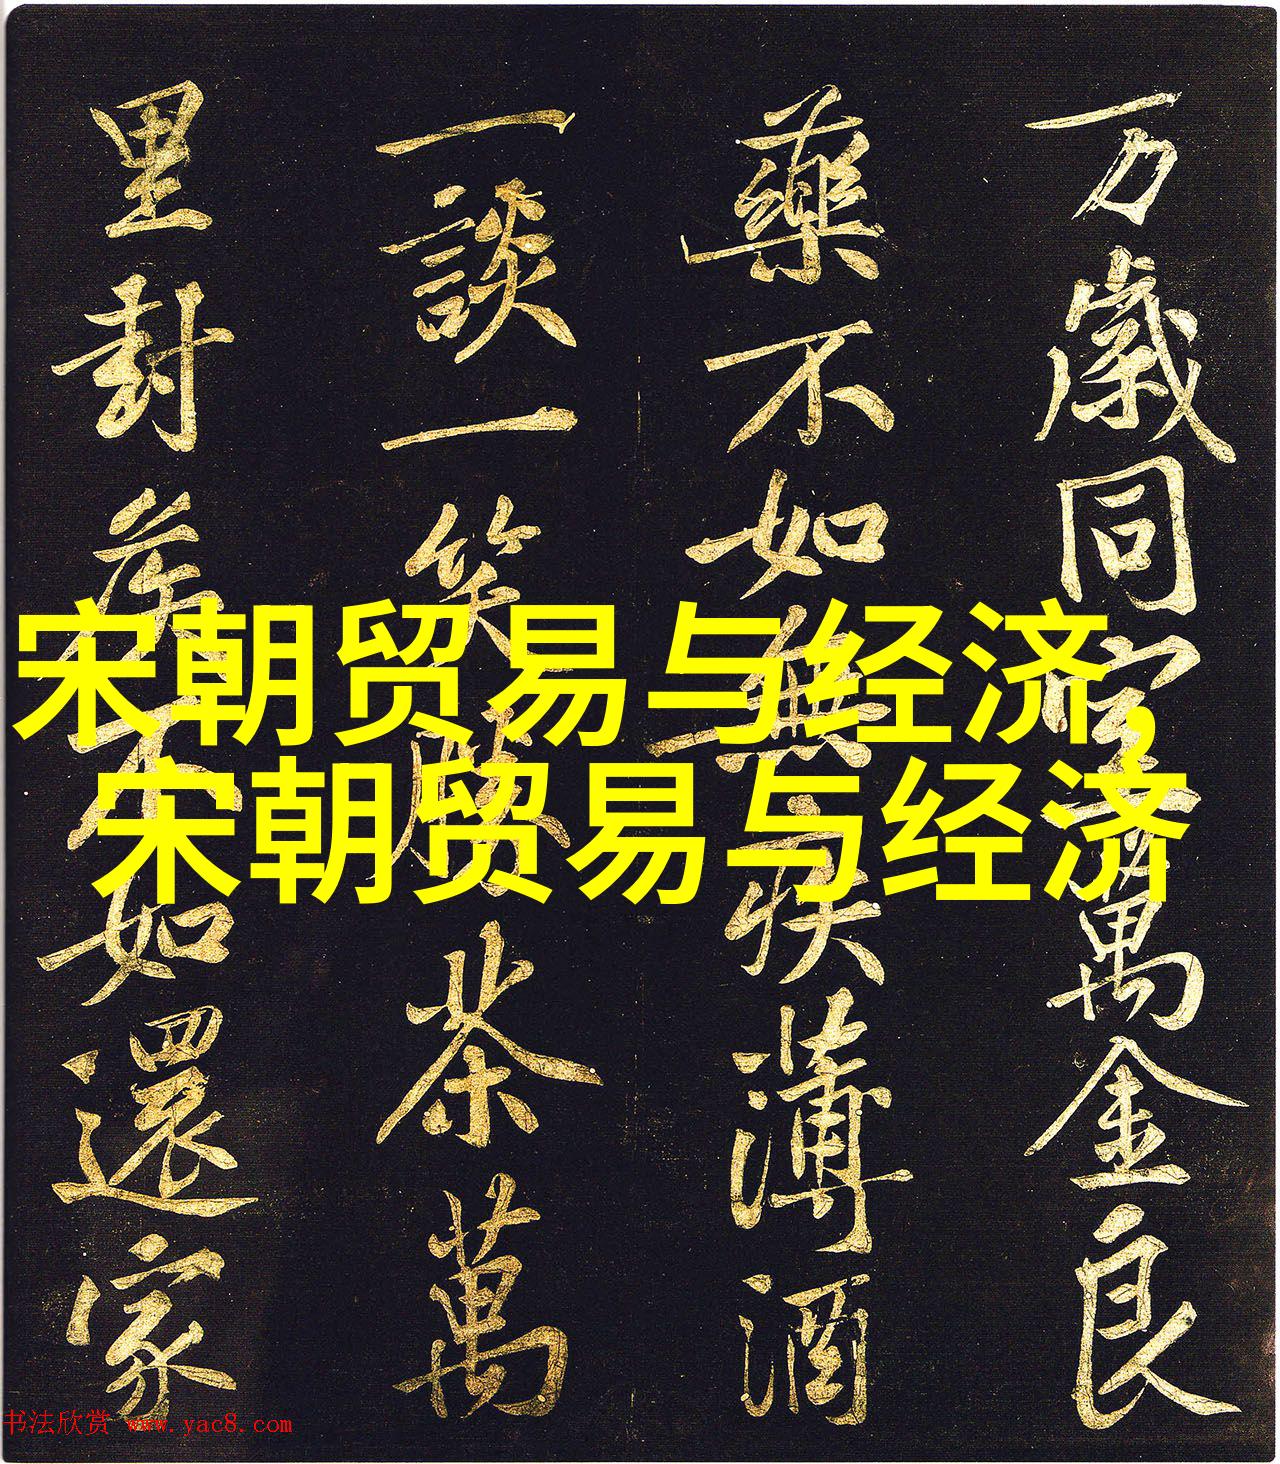 万歲同萬金良
藥不如無疾薄酒
一談一笑勝茶萬
里封矦不如還家
宋朝贸易与经济,
宋朝贸易与经济
书法欣赏 www.yac8.com